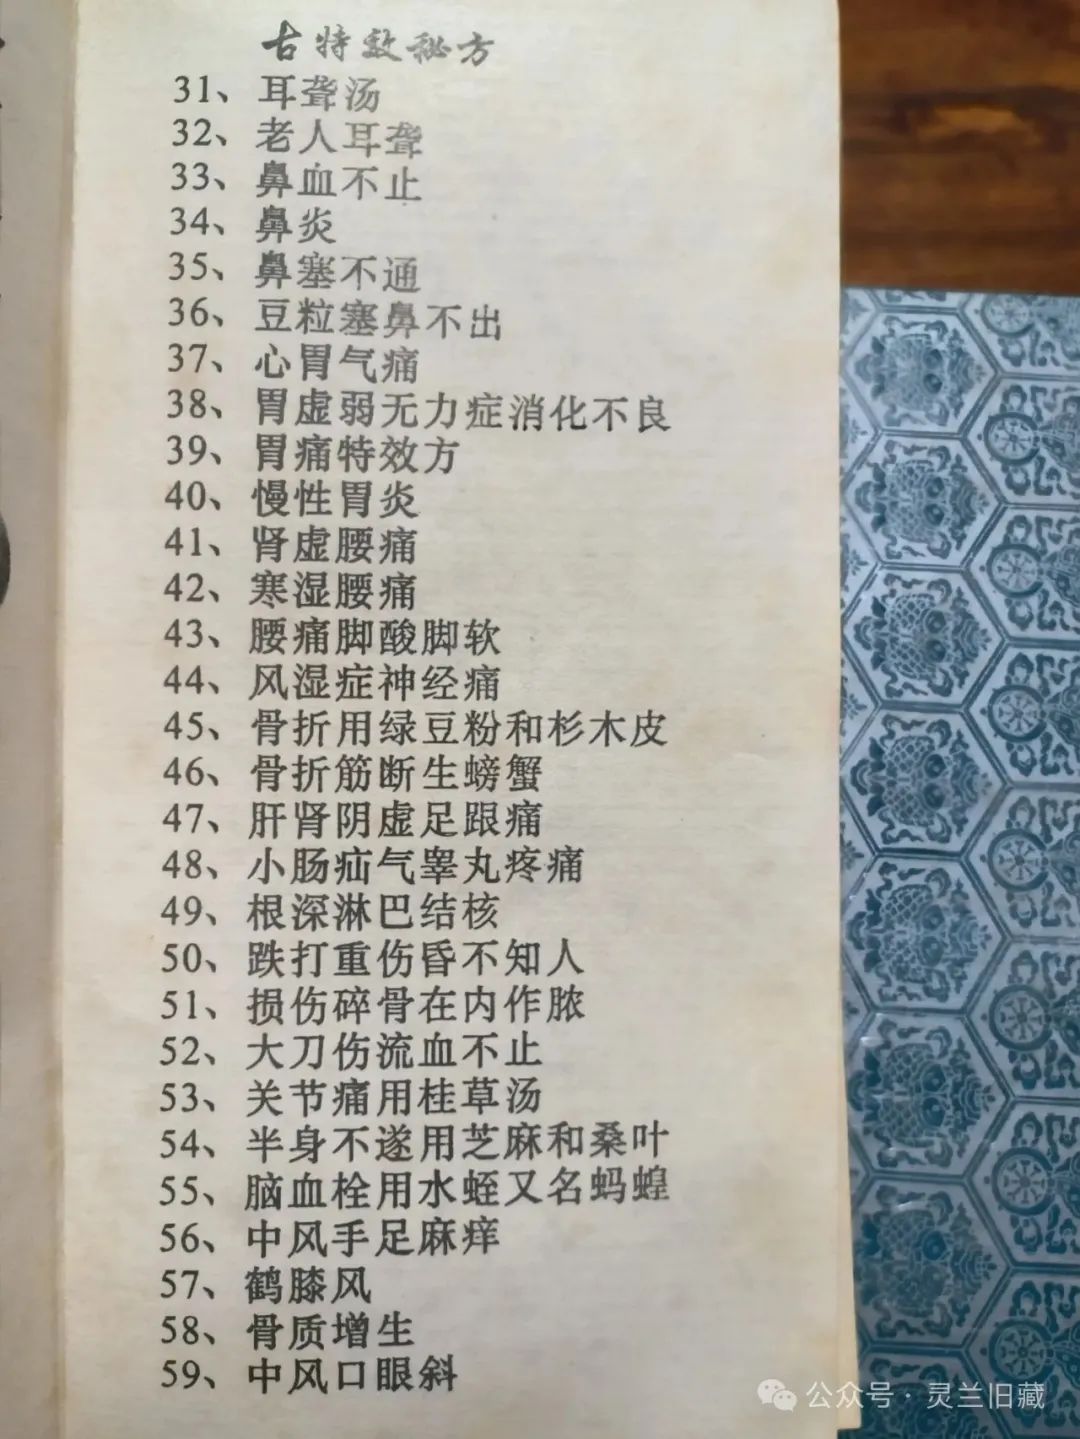 古特效秘方
31、耳聋汤
32、老人耳聋
33、鼻血不止
34、鼻炎
35、鼻塞不通
36、豆粒塞鼻不出
37、心胃气痛
38、胃虚弱无力症消化不良
39、胃痛特效方
40、慢性胃炎
41、肾虚腰痛
42、寒湿腰痛
43、腰痛脚酸脚软
44、风湿症神经痛
45、骨折用绿豆粉和杉木皮
46、骨折筋断生螃蟹
47、肝肾阴虚足跟痛
48、小肠疝气睾丸疼痛
49、根深淋巴结核
50、跌打重伤昏不知人
51、损伤碎骨在内作脓
52、大刀伤流血不止
53、关节痛用桂草汤
54、半身不遂用芝麻和桑叶
55、脑血栓用水蛭又名蚂蝗
56、中风手足麻痒
57、鹤膝风
58、骨质增生
59、中风口眼斜
公众号·灵兰旧藏